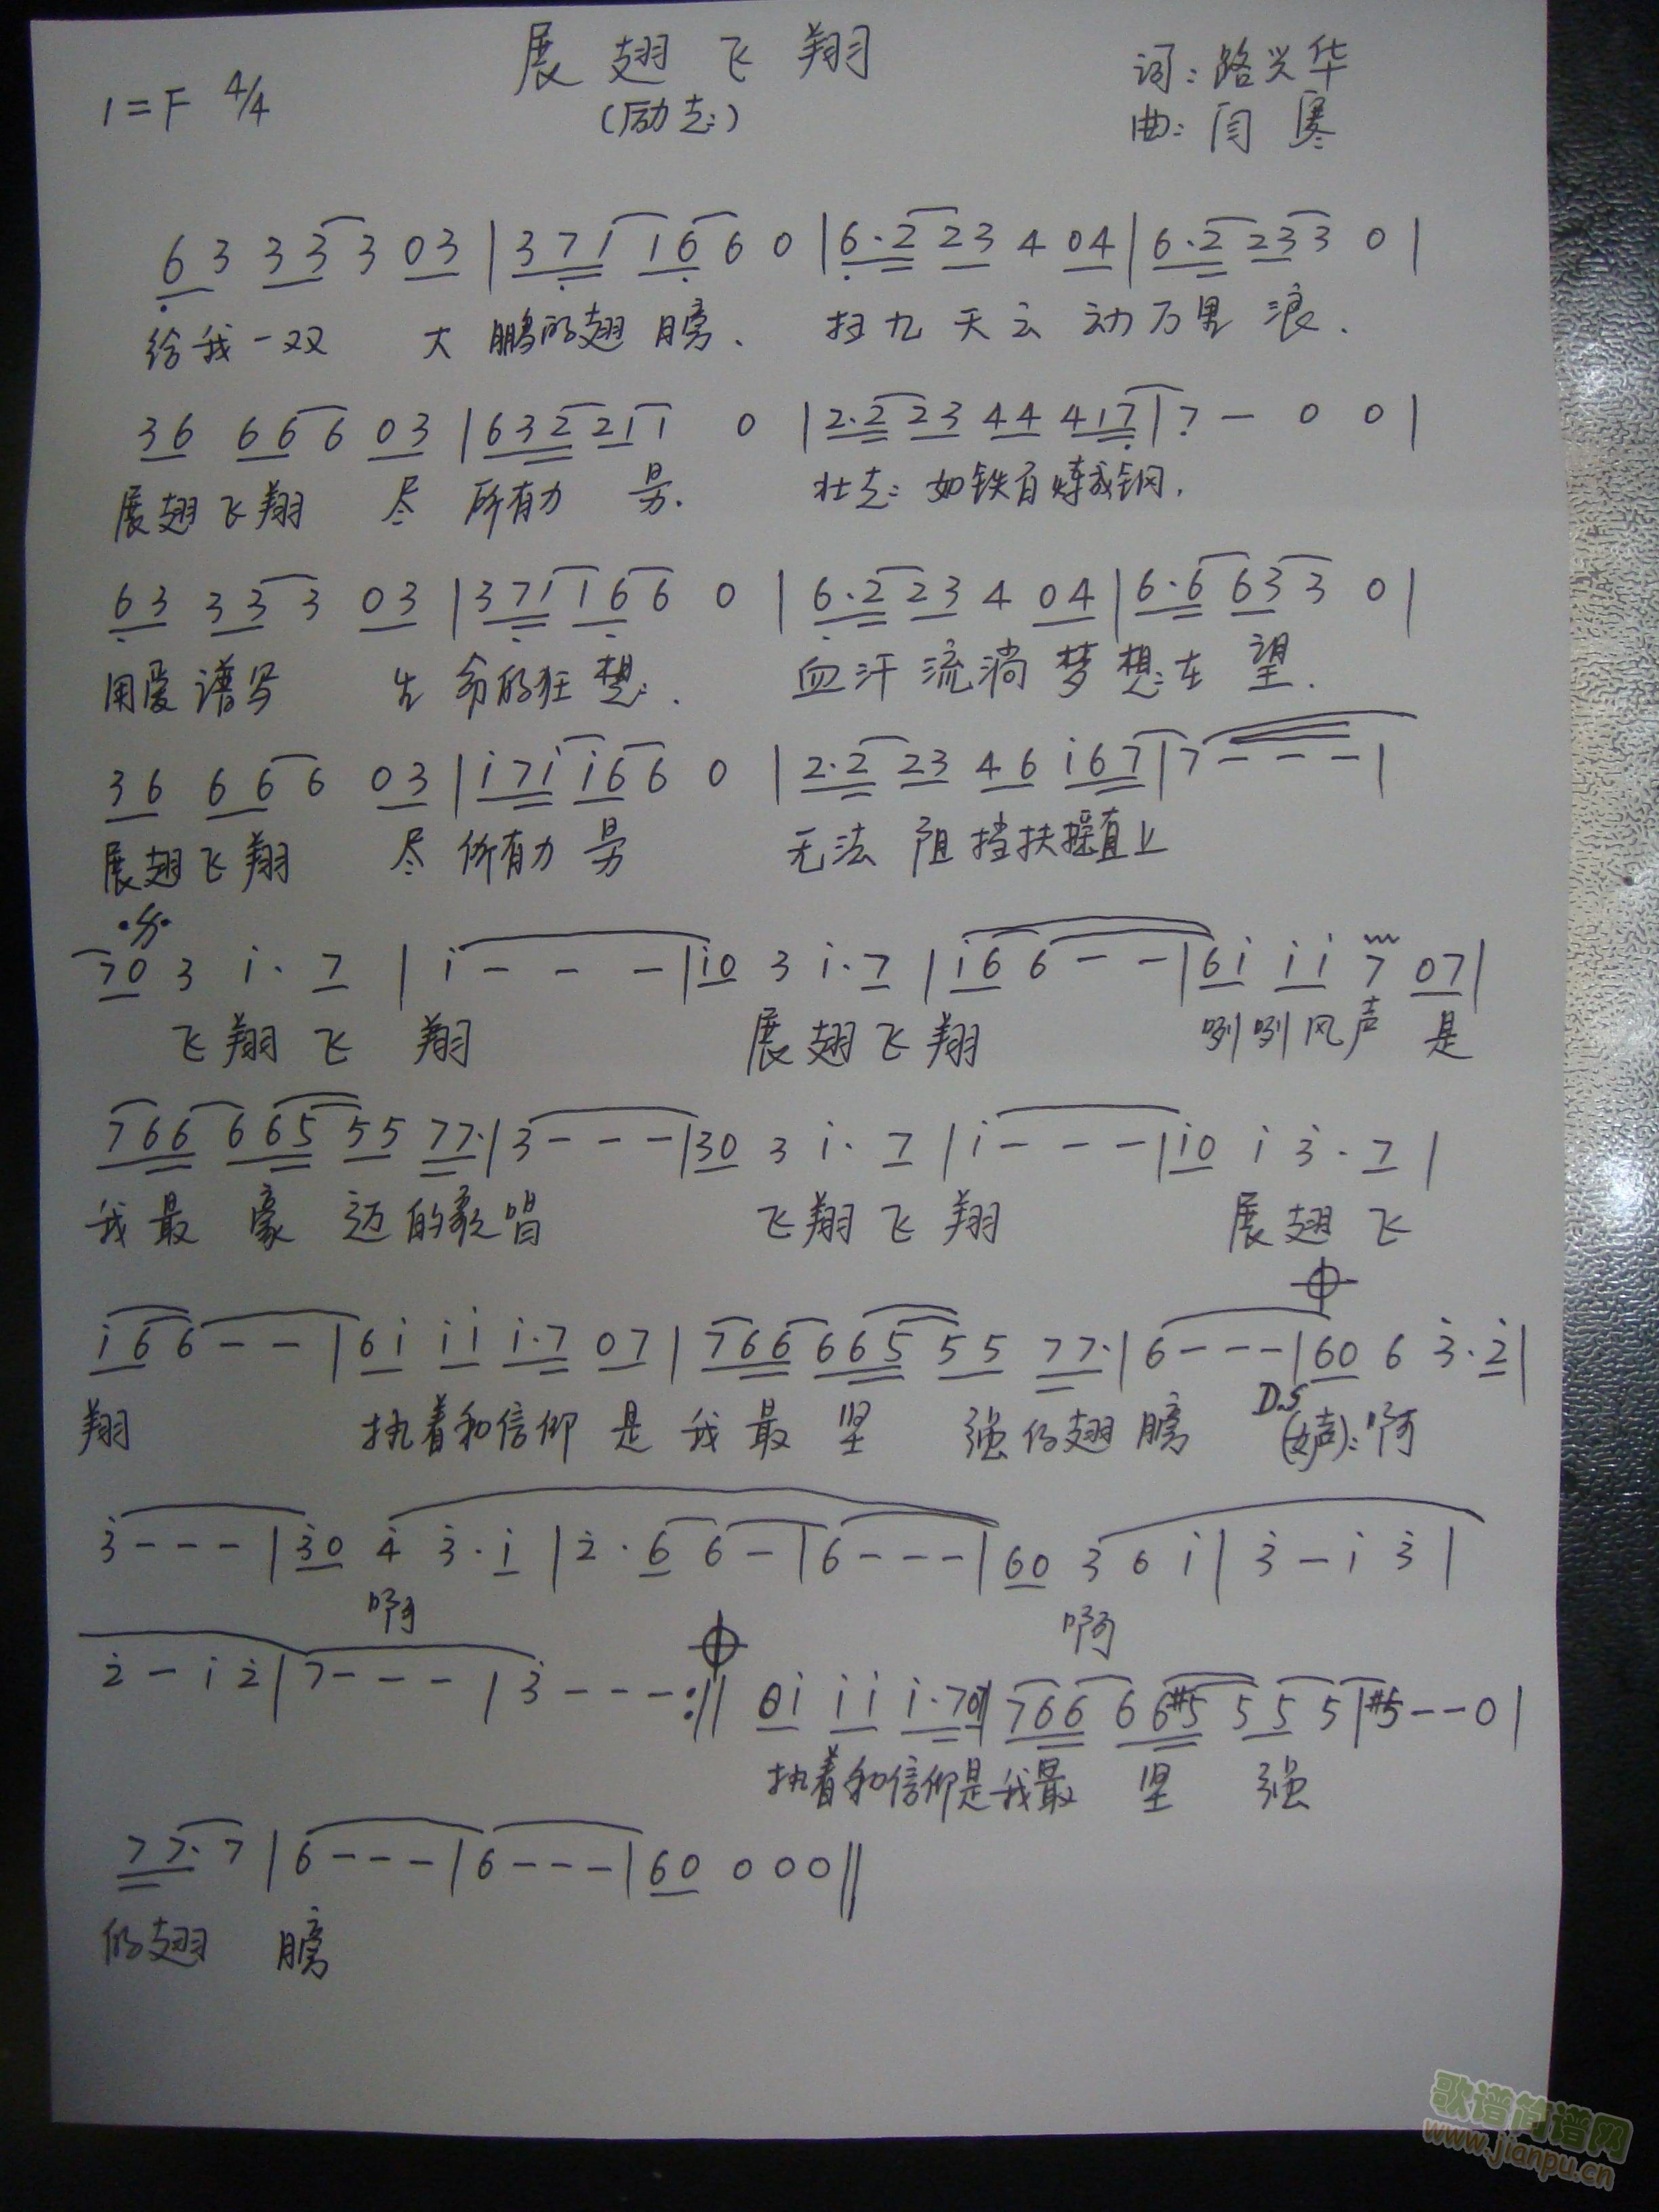 展翅飞翔
(励志)
1=F 4/4
词:路兴华
曲:闫寒
6 3 3 3 3 0 3 | 3 7 1 1 6 6 0 | 6·2 2 3 4 0 4 | 6·2 2 3 3 0 |
给我一双 大鹏的翅膀、 扫九天云动万里浪.
3 6 6 6 6 0 3 | 6 3 2 2 1 1 0 | 2·2 2 3 4 4 4 1 7 | 7 - 0 0 |
展翅飞翔 尽所有力量. 壮志如铁百炼成钢,
6 3 3 3 3 0 3 | 3 7 1 1 6 6 0 | 6·2 2 3 4 0 4 | 6·6 6 3 3 0 |
用爱谱写 生命的狂想. 血汗流淌梦想在望.
3 6 6 6 6 0 3 | i 7 i i 6 6 0 | 2·2 2 3 4 6 i 6 7 | 7 - - - |
展翅飞翔 尽所有力量 无法阻挡扶摇直上
7 0 3 i· 7 | i - - - | i 0 3 i· 7 | i 6 6 - - | 6 i i i 7 0 7 |
飞翔飞翔 展翅飞翔 咧咧风声是
7 6 6 6 6 5 5 5 7 7· | 3 - - - | 3 0 3 i· 7 | i - - - | i 0 i 3· 7 |
我最豪迈的歌唱 飞翔飞翔 展翅飞
i 6 6 - - | 6 i i i i·7 0 7 | 7 6 6 6 6 5 5 5 7 7· | 6 - - - | 6 0 6 3·2 |
D.S
翔 执着和信仰是我最坚强的翅膀 (女声):啊
3 - - - | 3 0 4 3·i | 2·6 6 - | 6 - - - | 6 0 3 6 i | 3 - i 3 |
啊 啊
2 - i 2 | 7 - - - | 3 - - - :|| 0 i i i i·7 0 7 | 7 6 6 6 6 #5 5 5 5 | #5 - - 0 |
执着和信仰是我最坚强
7 7· 7 | 6 - - - | 6 - - - | 6 0 0 0 0 ||
的翅膀
歌谱简谱网
www.jianpu.cn